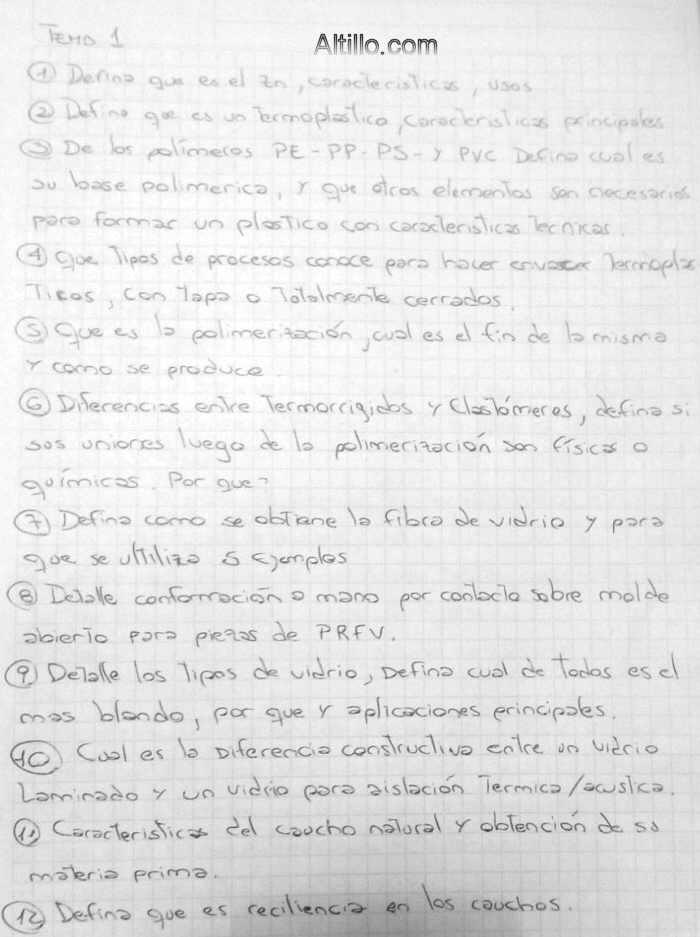 Tema 1
Altillo.com
① Defina que es el Zn, caracteristicas, usos
② Defina que es un Termoplastico, caracteristicas principales
③ De los polímeros PE-PP-PS-Y PVC Defina cual es
su base polimerica, Y que otros elementos son necesarios
para formar un plastico con caracteristicas tecnicas.
④ Que Tipos de procesos conoce para hacer envases Termoplas
Ticos, con Tapa o Totalmente cerrados.
⑤ Que es la polimerización, cual es el fin de la misma
Y como se produce.
⑥ Diferencias entre Termorrigidos Y Elastómeros, defina si
sus uniones luego de la polimerización son físicas o
químicas. Por que?
⑦ Defina como se obtiene la fibra de vidrio y para
que se ultiliza 5 ejemplos
⑧ Detalle conformación a mano por contacto sobre molde
abierto para piezas de PRFV.
⑨ Detalle los Tipos de vidrio, Defina cual de todos es el
mas blando, por que Y aplicaciones principales.
⑩ Cual es la Diferencia constructiva entre un vidrio
Laminado y un vidrio para aislación Termica/acustica.
⑪ Caracteristicas del caucho natural Y obtención de su
materia prima.
⑫ Defina que es reciliencia en los cauchos.